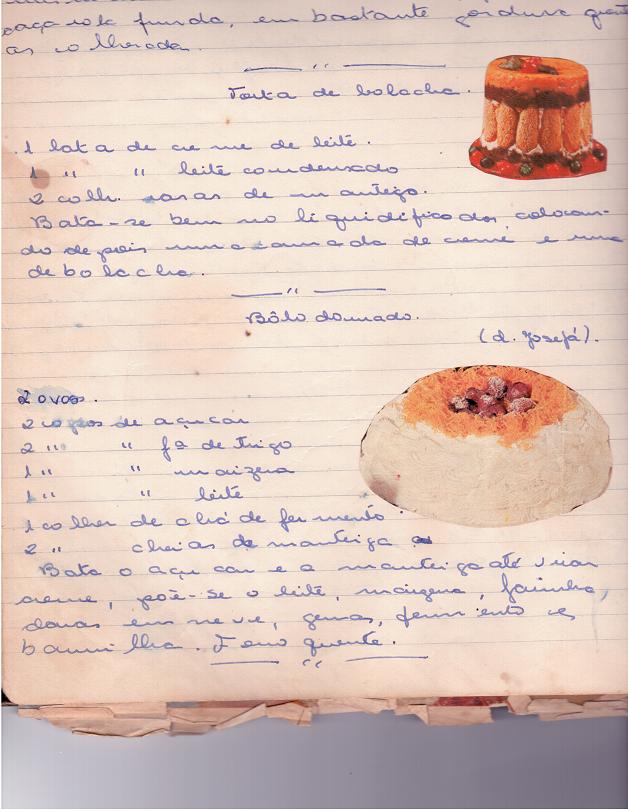 funda, em bastante gordura quente
as colherada.
Torta de bolacha.
1 lata de creme de leite.
1 " " leite condensado
2 colh. rasas de mantega.
Bata-se bem no liquidificador, colocan-
do depois uma camada de creme e uma
de bolacha.
Bôlo dourado.
(d. Josefá).
2 ovos.
2 copos de açucar
2 " " fª de trigo
1 " " maizena
1 " " leite
1 colher de chá de fermento
2 " cheias de manteiga
Bata o açucar e a manteiga até virar
creme, põe-se o leite, maizena, farinha,
claras em neve, gemas, fermento e
baunilha. Forno quente.